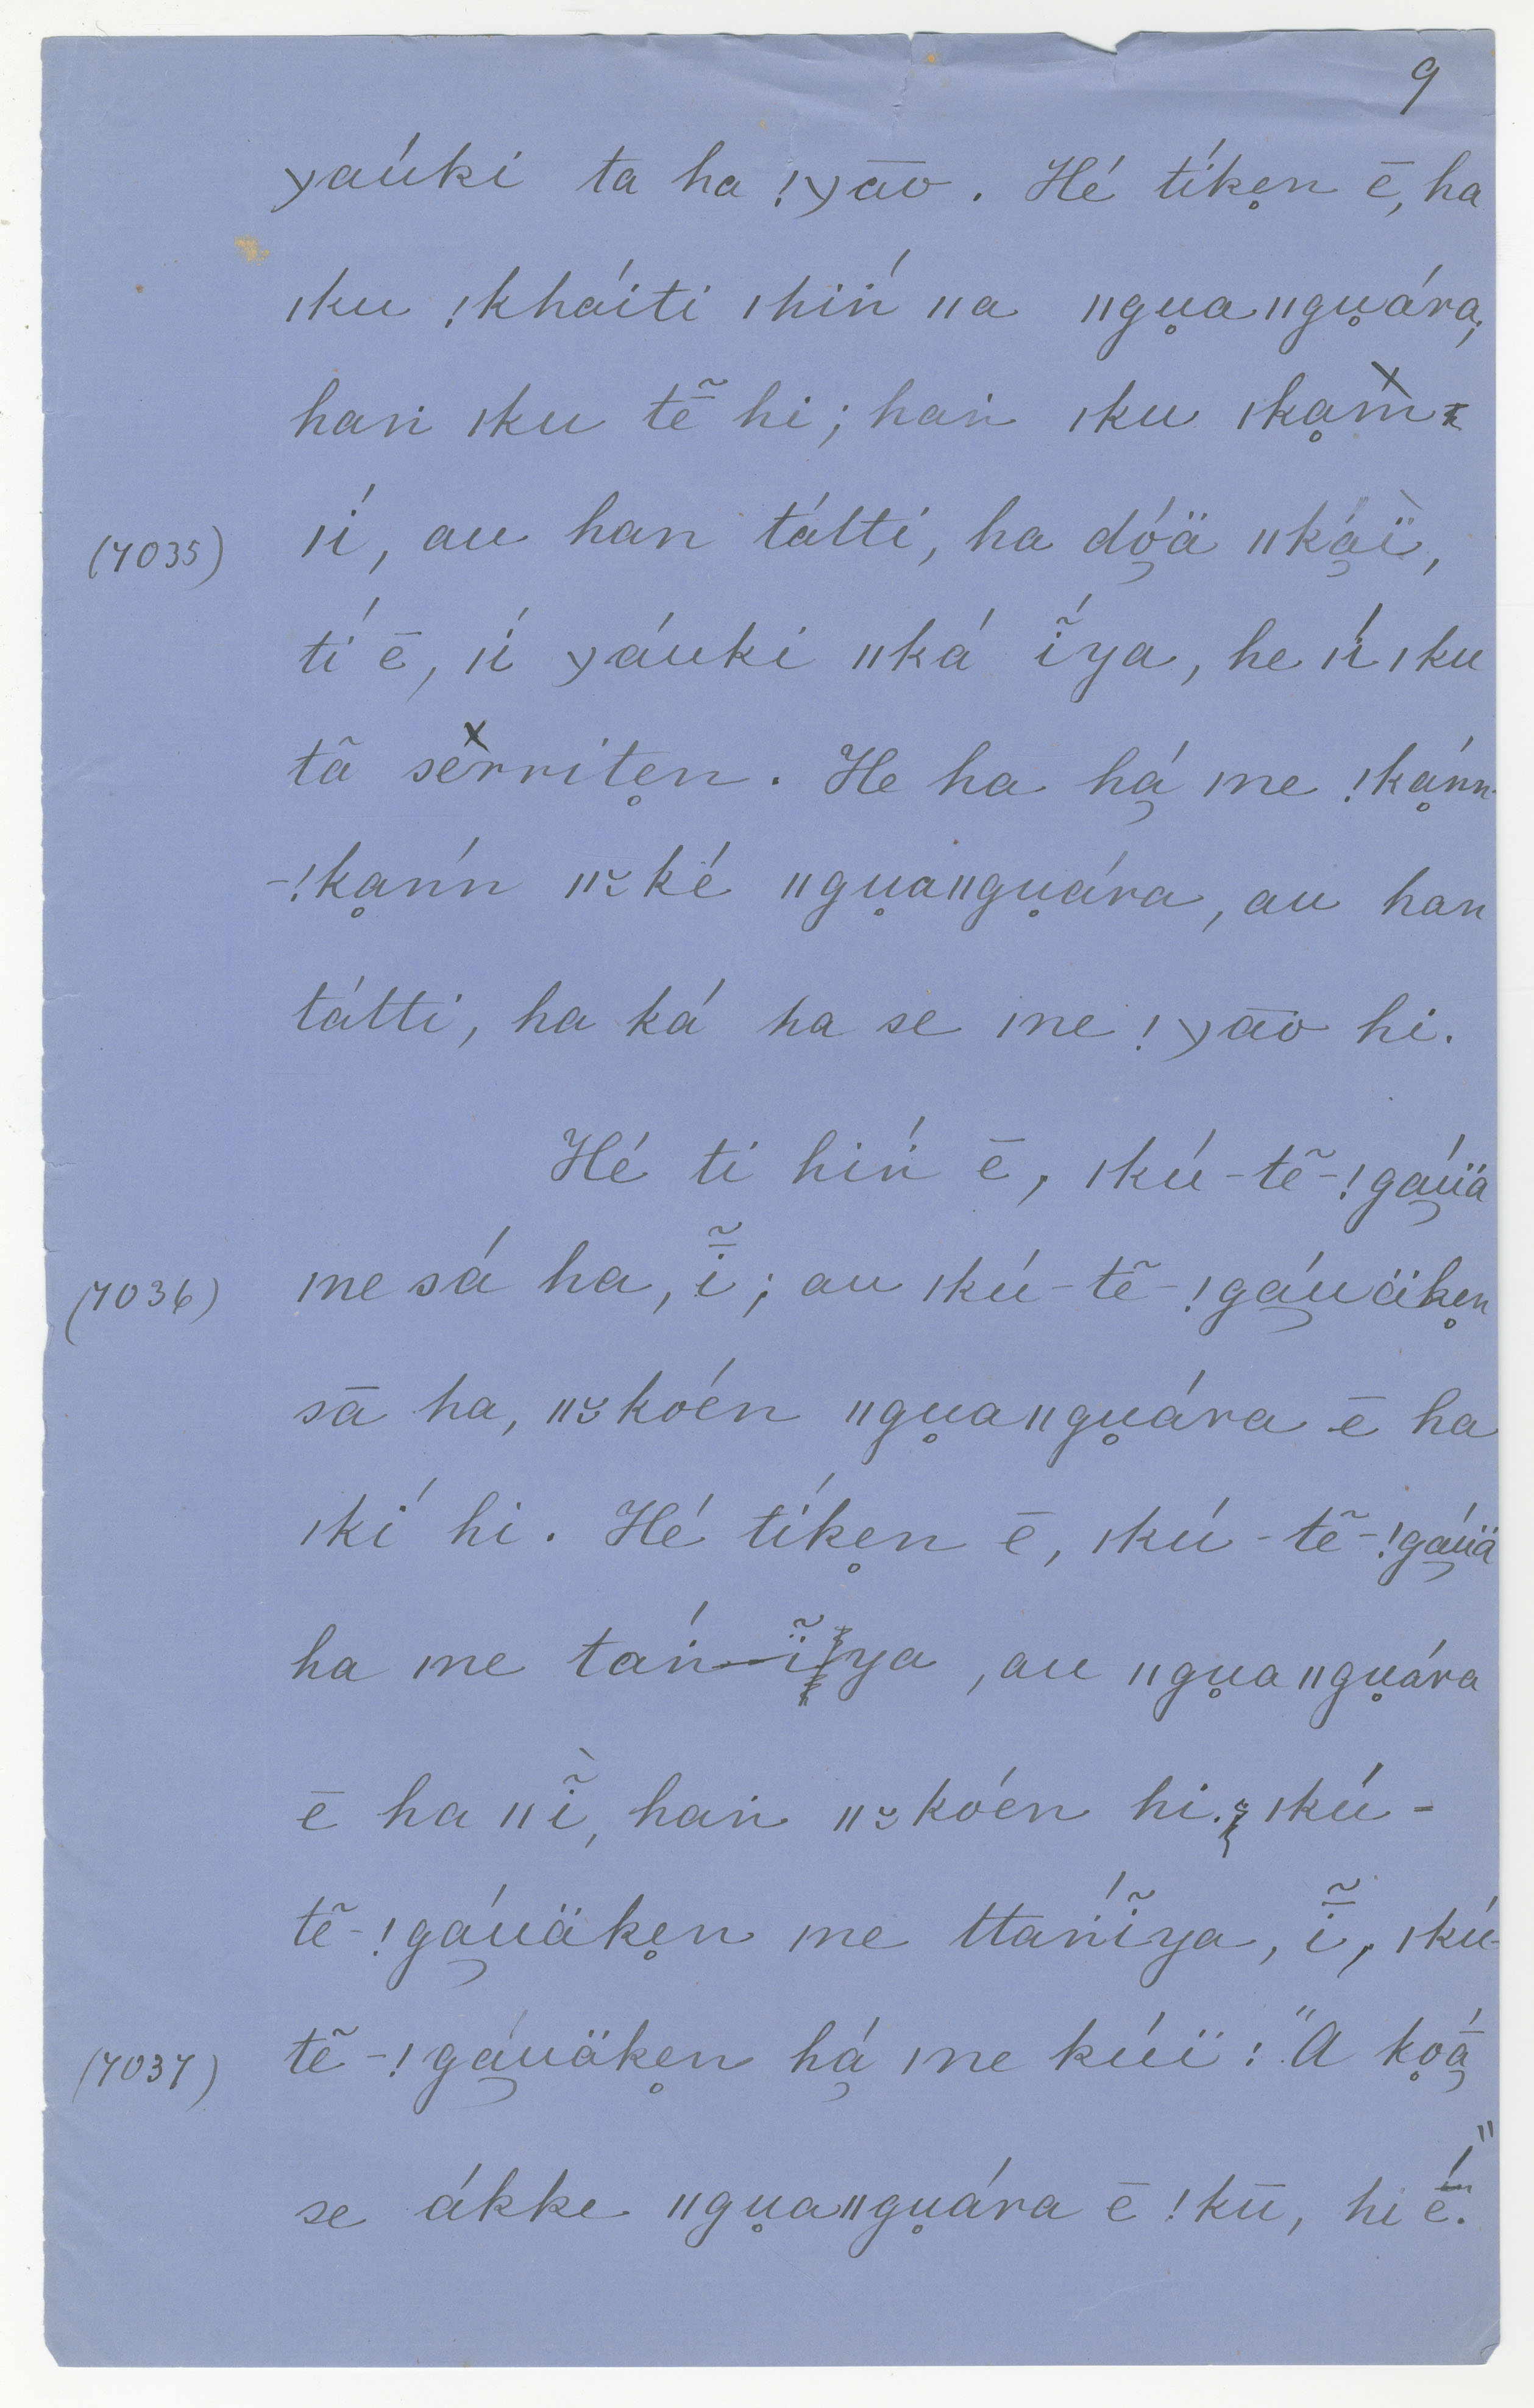 9
ɣaúki ta ha !ɣāo. Hé tíkẹn ē, ha
ǀku !kháiti ǀhiṅ́ ǁa ǁgụaǁgụára;
haṅ ǀku tē̃ hi; haṅ ǀku ǀkạm̀-
(7035) ǀí, au han tátti, ha dóä ǁkáï̀,
tí ē, ǀí ɣáuki ǁká ĩ́ya, he ǀí ǀku
tã sèrritẹn. He ha há̜ ǀne !kạ́nn-
-!kạnń ǁ͏̆ké ǁgụaǁgụára, au han
tátti, ha ká ha se ǀne !ɣāo hi.
Hé ti hiṅ́ ē, ǀkú-tẽ-!gá̜uä
(7036) ǀne sá ha, ī̃; au ǀkú-tẽ-!gá̜uäkẹn
sā ha, ǁ͏̆koén ǁgụaǁgụára ē ha
ǀkí hi. Hé tíkẹn ē, ǀkú-tẽ-!gá̜uä
ha ǀne taṅ́-ĩya, au ǁgụaǁgụára
ē ha ǁĩ̀, haṅ ǁ͏̆koén hi. ǀkú-
tẽ-!gá̜uäkẹn ǀne ttaṅ́ĩya, ī̃, ǀkú-
(7037) tẽ-!gá̜uäkẹn há̜ ǀne kúï: "A kọā̜́
se ákke ǁgụaǁgụára ē !kū, hi é."